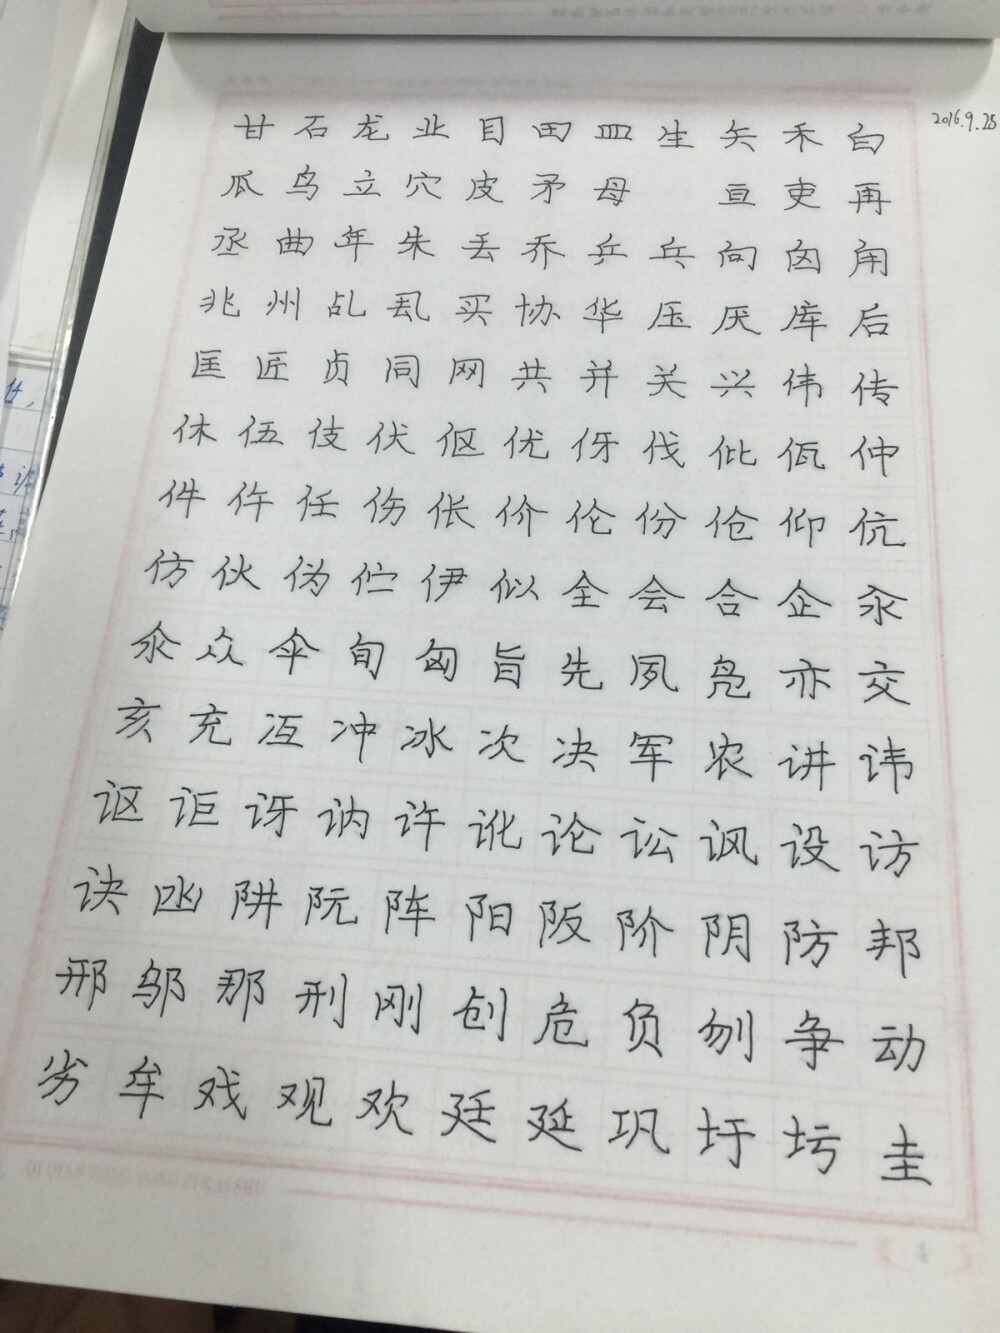 2016.9.25
甘石龙业目田皿生矢禾白
瓜鸟立穴皮矛母 亘吏再
丞曲年朱丢乔乒乓向囟甪
兆州乩乱买协华压厌库后
匡匠贞同网共并关兴伟传
休伍伎伏伛优伢伐仳佤仲
件仵任伤伥价伦份伧仰伉
仿伙伪伫伊似全会合企汆
氽众伞旬匈旨先夙凫亦交
亥充冱冲冰次决军农讲讳
讴讵讶讷许讹论讼讽设访
诀凼阱阮阵阳阪阶阴防邦
邢邬那刑刚创危负刎争动
劣牟戏观欢廷延巩圩圬圭